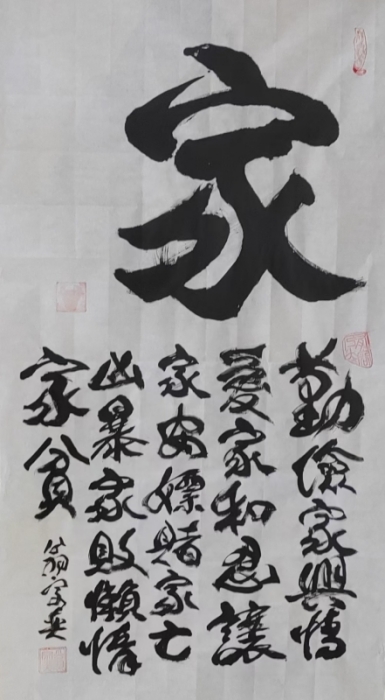 家
勤儉家興博
愛家和忍讓
家安嫖賭家亡
凶暴家敗懶惰
家貧